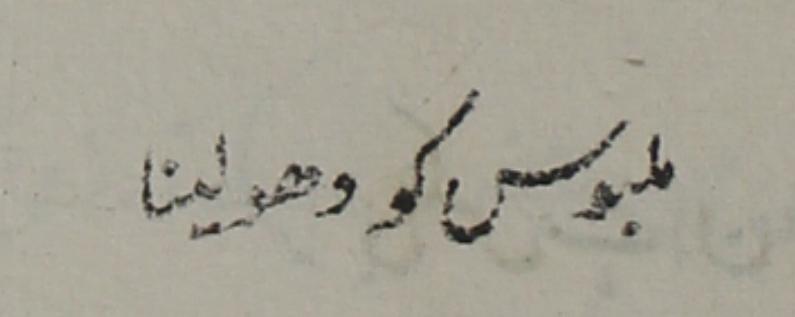 ملبوس کو دھو لینا